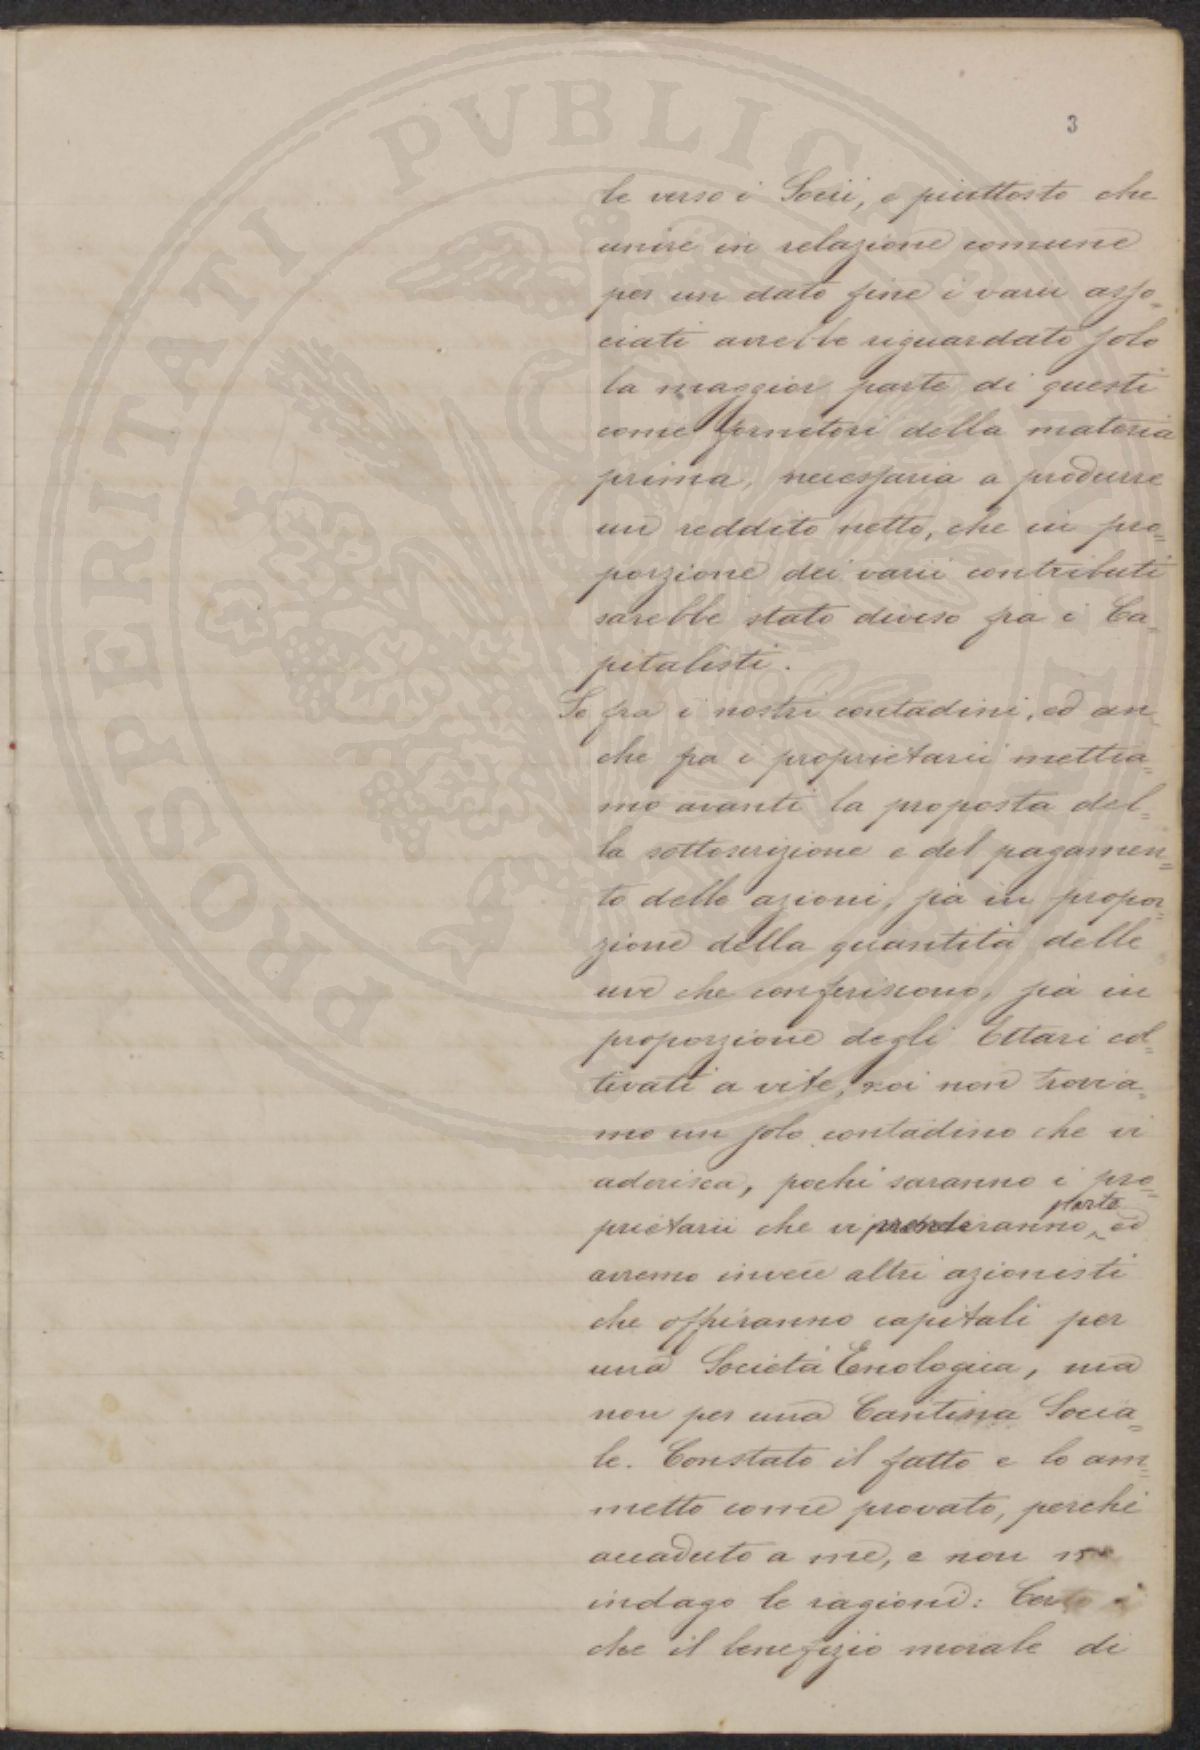 PROSPERITATI PUBLICAE
3
le verso i Socii, e piuttosto che
unire in relazione comune
per un dato fine i varii asso=
ciati avrebbe riguardato solo
la maggior parte di questi
come fornitori della materia
prima, necessaria a produrre
un reddito netto, che in pro=
porzione dei varii contributi
sarebbe stato diviso fra i Ca=
pitalisti.
Se fra i nostri contadini, ed an=
che fra i proprietarii mettia=
mo avanti la proposta del=
la sottoscrizione e del pagamen=
to delle azioni, sia in propor=
zione della quantità delle
uve che conferiscono, sia in
proporzione degli Ettari col=
tivati a vite, noi non trovia=
mo un solo contadino che vi
aderisca, pochi saranno i pro=
prietarii che vi prenderanno parte ed
avremo invece altri azionisti
che offriranno capitali per
una Società Enologica, ma
non per una Cantina Socia=
le. Constato il fatto e lo am=
metto come provato, perché
accaduto a me, e non ne
indago le ragioni: Certo è
che il benefizio morale di